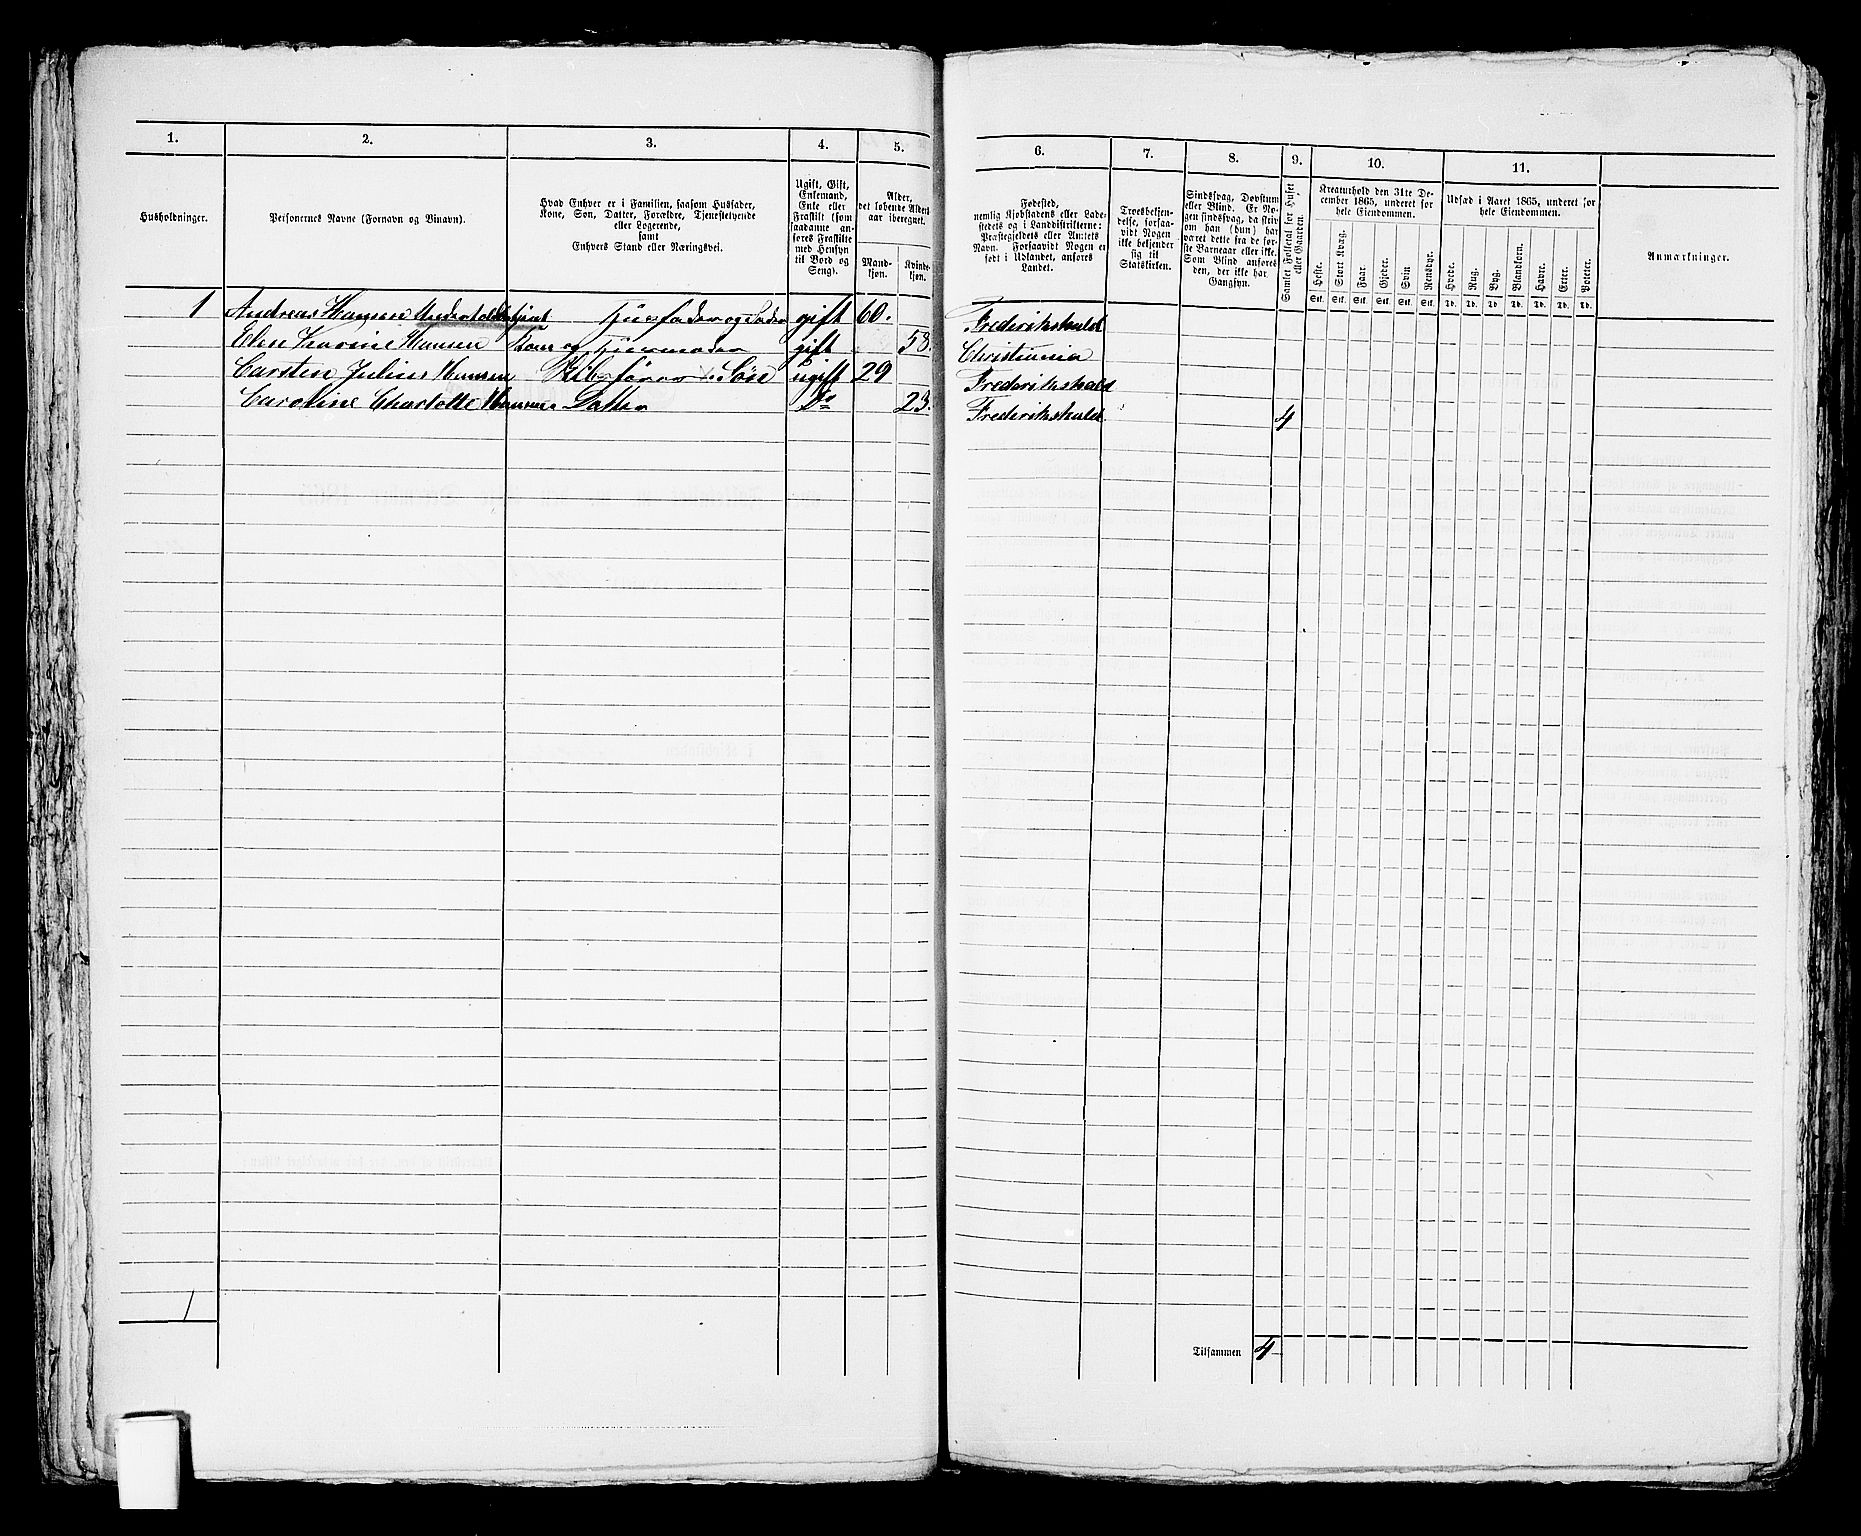 1. 2. 3. 4. 5. 6. 7. 8. 9. 10. 11.
Husholdninger.
Personernes Navne (Fornavn og Binavn).
Hvad Enhver er i Familien, saasom Husfader,
Kone, Søn, Datter, Forældre, Tjenestetyende
eller Logerende,
samt
Enhvers Stand eller Næringsvei.
Ugift, Gift,
Enkemand,
Enke eller
Fraskilt (som
saadanne an-
føres Fraskilte
med Hensyn
til Bord og
Seng).
Alder,
det løbende Alders-
aar iberegnet.
Mand-
kjøn.
Kvinde-
kjøn.
Fødested,
nemlig Kjøbstadens eller Lade-
stedets og i Landdistrikterne:
Præstegjeldets eller Amtets
Navn. Forsaavidt Nogen er
født i Udlandet, anføres
Landet.
Troesbekjen-
delse, forsaa-
vidt Nogen
ikke bekjender
sig til
Statskirken.
Sindssvag, Døvstum
eller Blind. Er No-
gen sindssvag, da skriv
om han (hun) har
været dette fra de før-
ste Barneaar eller ikke.
Som Blind anføres
den, der ikke har
Gangsyn.
Samlet Folketal for Huset
eller Gaarden.
Kreaturhold den 31te De-
cember 1865, underet for
hele Eiendommen.
Heste. Stort Kvæg. Faar. Gjeder. Svin Rensdyr.
Stk. Stk. Stk. Stk. Stk. Stk.
Udsæd i Aaret 1865, underet for
hele Eiendommen.
Hvede. Rug. Byg. Blandkorn. Havre. Erter. Poteter.
Td. Td. Td. Td. Td. Td. Td.
Anmærkninger.
1 Andreas Hansen Husfader og Fader gift 60. Frederikshald
Elen Karine Hansen Kone og Huusmoder gift 58. Christiania
Carsten Julius Hansen Søn ugift 29 Frederikshald
Caroline Charlotte Hansen Datter Do 23. Frederikshald 4
1
Tilsammen 4